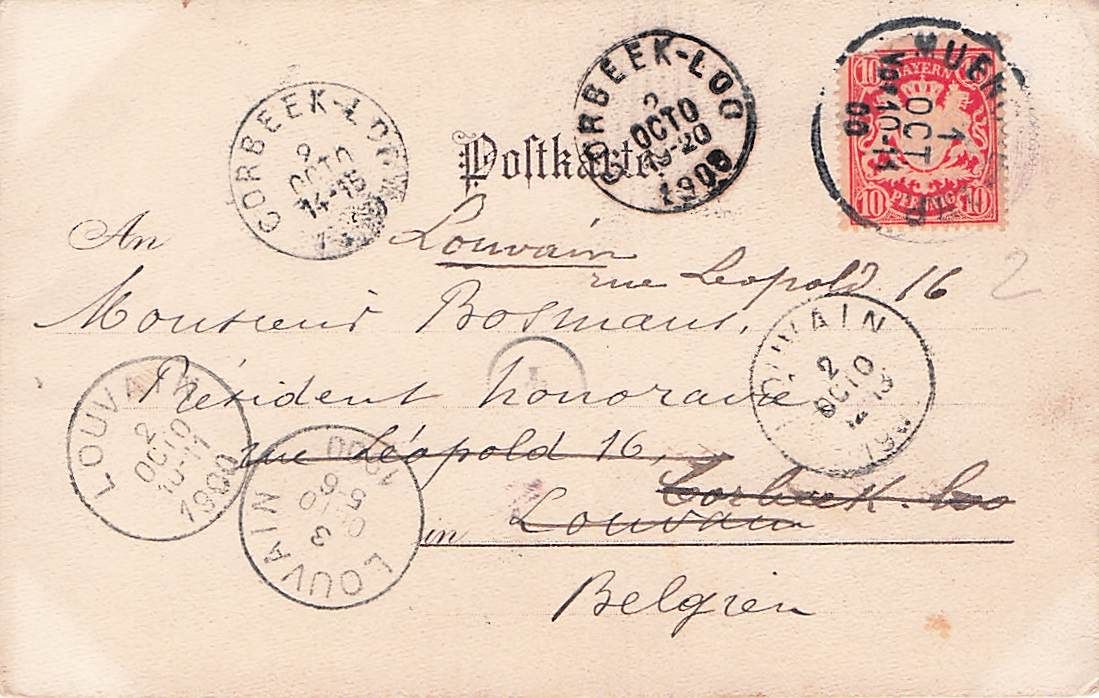 CORBEEK-LOO
2
OCTO
14-15
CORBEEK-LOO
2
OCTO
19-20
1900
Postkarte
10 BAYERN 10
10 PFENNIG 10
1
OCT
10-11
00
An Louvain
rue Leopold 16
2
Monsieur Bosmans,
Président honoraire
rue Léopold 16,
Corbeek-Loo
in Louvain
Belgien
LOUVAIN
2
OCTO
12-13
LOUVAIN
2
OCTO
10-11
1900
LOUVAIN
3
OCTO
5-6
1900
1